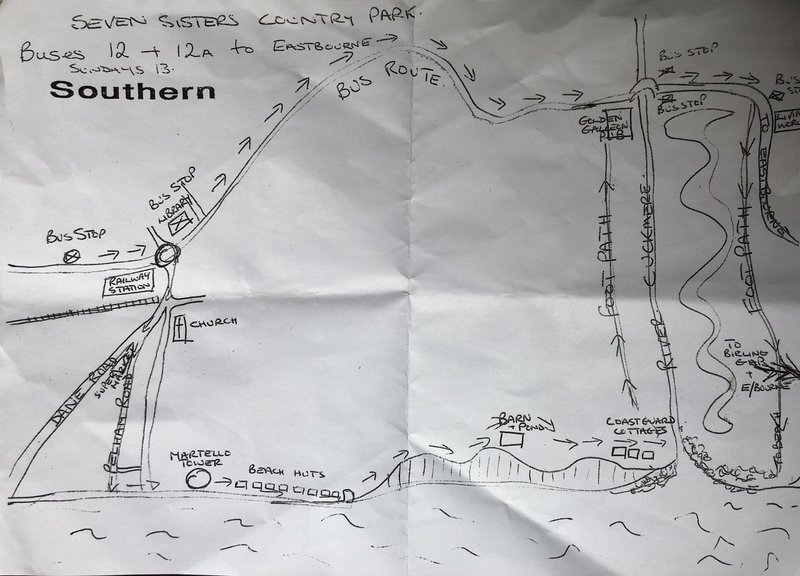 SEVEN SISTERS COUNTRY PARK.
BUSES 12 + 12A to EASTBOURNE
SUNDAYS 13.
Southern
BUS ROUTE.
BUS STOP
BUS STOP
BUS
GOLDEN
GALLEON
PUB
LIVING
TO EASTBOURNE
BUS STOP
LIBRARY
BUS STOP
RAILWAY
STATION
CHURCH
FOOT PATH
RIVER CUCKMERE.
FOOT PATH
TO
BIRLING
GAP
+
E/BOURNE
DANE ROAD
SUPER
MARKET
PELHAM ROAD
MARTELLO
TOWER
BEACH HUTS
BARN
+ POND
COASTGUARD
COTTAGES
TO BEACH